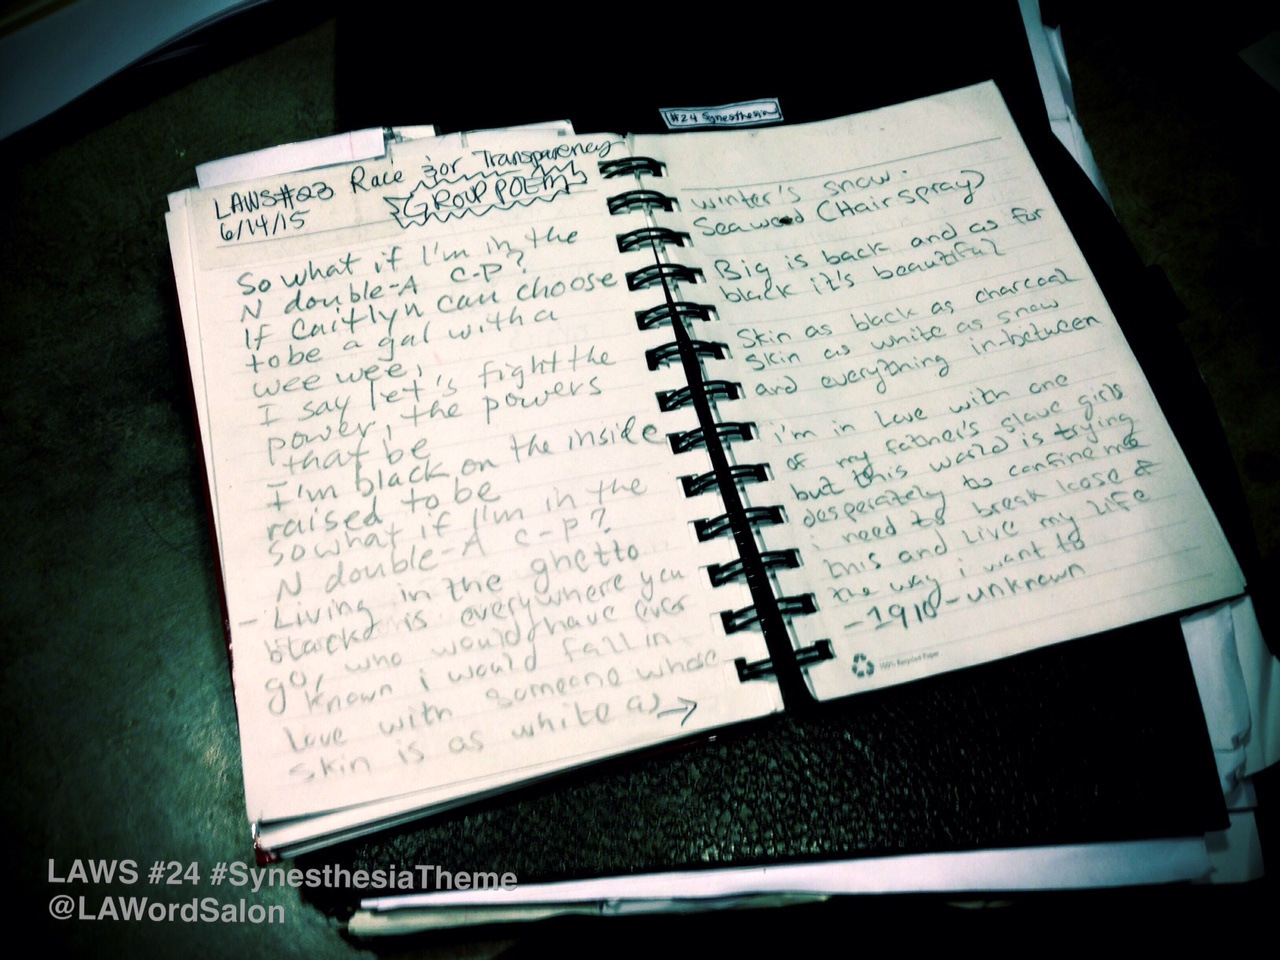 LAWS#23 Race for Transparency
6/14/15
GROUP POEM
So what if I'm in the
N double-A C-P?
If Caitlyn can choose
to be a gal with a
wee wee,
I say let's fight the
power, the powers
that be
I'm black on the inside
raised to be
So what if I'm in the
N double-A C-P?
- Living in the ghetto
blacks is everywhere you
go, who would have ever
known i would fall in
Love with someone whose
skin is as white as →
#24 Synesthesia
winter's snow.
Seaweed (Hairspray)
Big is back and as for
black it's beautiful
Skin as black as charcoal
Skin as white as snow
and everything in-between
i'm in love with one
of my father's slave girls
but this world is trying
desperately to confine me
i need to break loose of
this and Live my life
the way i want to
-1910-unknown
100% Recycled Paper
LAWS #24 #SynesthesiaTheme
@LAWordSalon